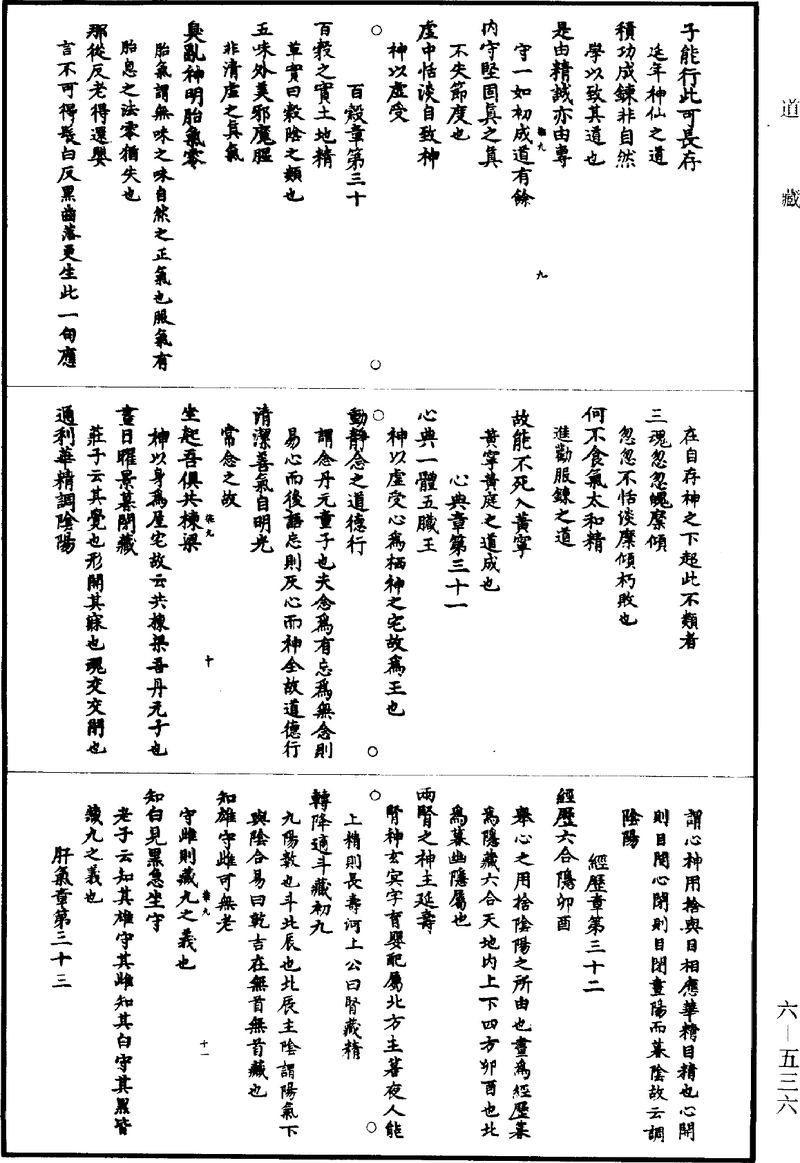 道藏
子能行此可長存
延年神仙之道
積功成鍊非自然
學以致其道也
是由精誠亦由專
守一如初成道有餘
內守堅固真之真
不失節度也
虛中恬淡自致神
神以虛受
百穀章第三十
百穀之實土地精
草實曰穀陰之類也
五味外美邪魔腥
非清虛之真氣
臭亂神明胎氣零
胎氣謂無味之味自然之正氣也服氣有
胎息之法零猶失也
那從反老得還嬰
言不可得髮白反黑齒落更生此一句應
九
在自存神之下起此不類者
三魂忽忽魄糜傾
忽忽不恬淡糜傾朽敗也
何不食氣太和精
進勸服鍊之道
故能不死入黃寧
黃寧黃庭之道成也
心典章第三十一
心典一體五臟王
神以虛受心為栖神之宅故為王也
動靜念之道德行
謂念丹元童子也夫念為有忘為無念則
易心而後語忘則灰心而神全故道德行
清潔善氣自明光
常念之故
坐起吾俱共棟梁
神以身為屋宅故云共棟梁吾丹元子也
晝日曜景暮閉藏
莊子云其覺也形開其寐也魂交交閉也
通利華精調陰陽
十
謂心神用捨與日相應華精目精也心開
則目開心閉則目閉晝陽而暮陰故云調
陰陽
經歷章第三十二
經歷六合隱卯酉
舉心之用捨陰陽之所由也晝為經歷暮
為隱藏六合天地內上下四方卯酉也北
為暮幽隱屬也
兩腎之神主延壽
腎神玄冥字育嬰配屬北方主暮夜人能
上精則長壽河上公曰腎藏精
轉降適斗藏初九
九陽數也斗北辰也北辰主陰謂陽氣下
與陰合易曰乾吉在無首無首藏也
知雄守雌可無老
守雌則藏九之義也
知白見黑急坐守
老子云知其雄守其雌知其白守其黑皆
藏九之義也
肝氣章第三十三
十一
六—五三六